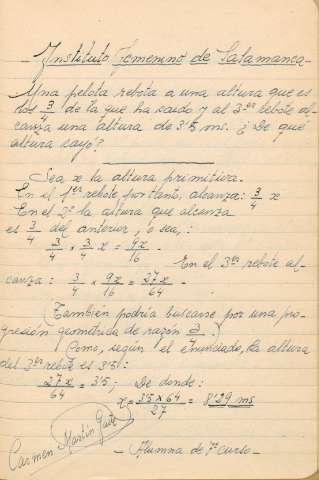 - Instituto Femenino de Salamanca -
Una pelota rebota a una altura que es
los 3/4 de la que ha caido y al 3er rebote al-
canza una altura de 3'5 ms. ¿De qué
altura cayó?
Sea x la altura primitiva.
En el 1er rebote por tanto, alcanza: 3/4 x
En el 2º la altura que alcanza
es 3/4 del anterior, o sea,:
3/4 x 3/4 x = 9x/16 .
En el 3er rebote al-
canza: 3/4 x 9x/16 = 27x/64 .
(También podría buscarse por una pro-
gresión geométrica de razón 3/4)
Como, según el enunciado, la altura
del 3er rebote es 3'5:
27x/64 = 3'5; De donde:
x = 3'5 x 64/27 = 8'29 ms
Carmen Martín Gaite
- Alumna de 7º curso -